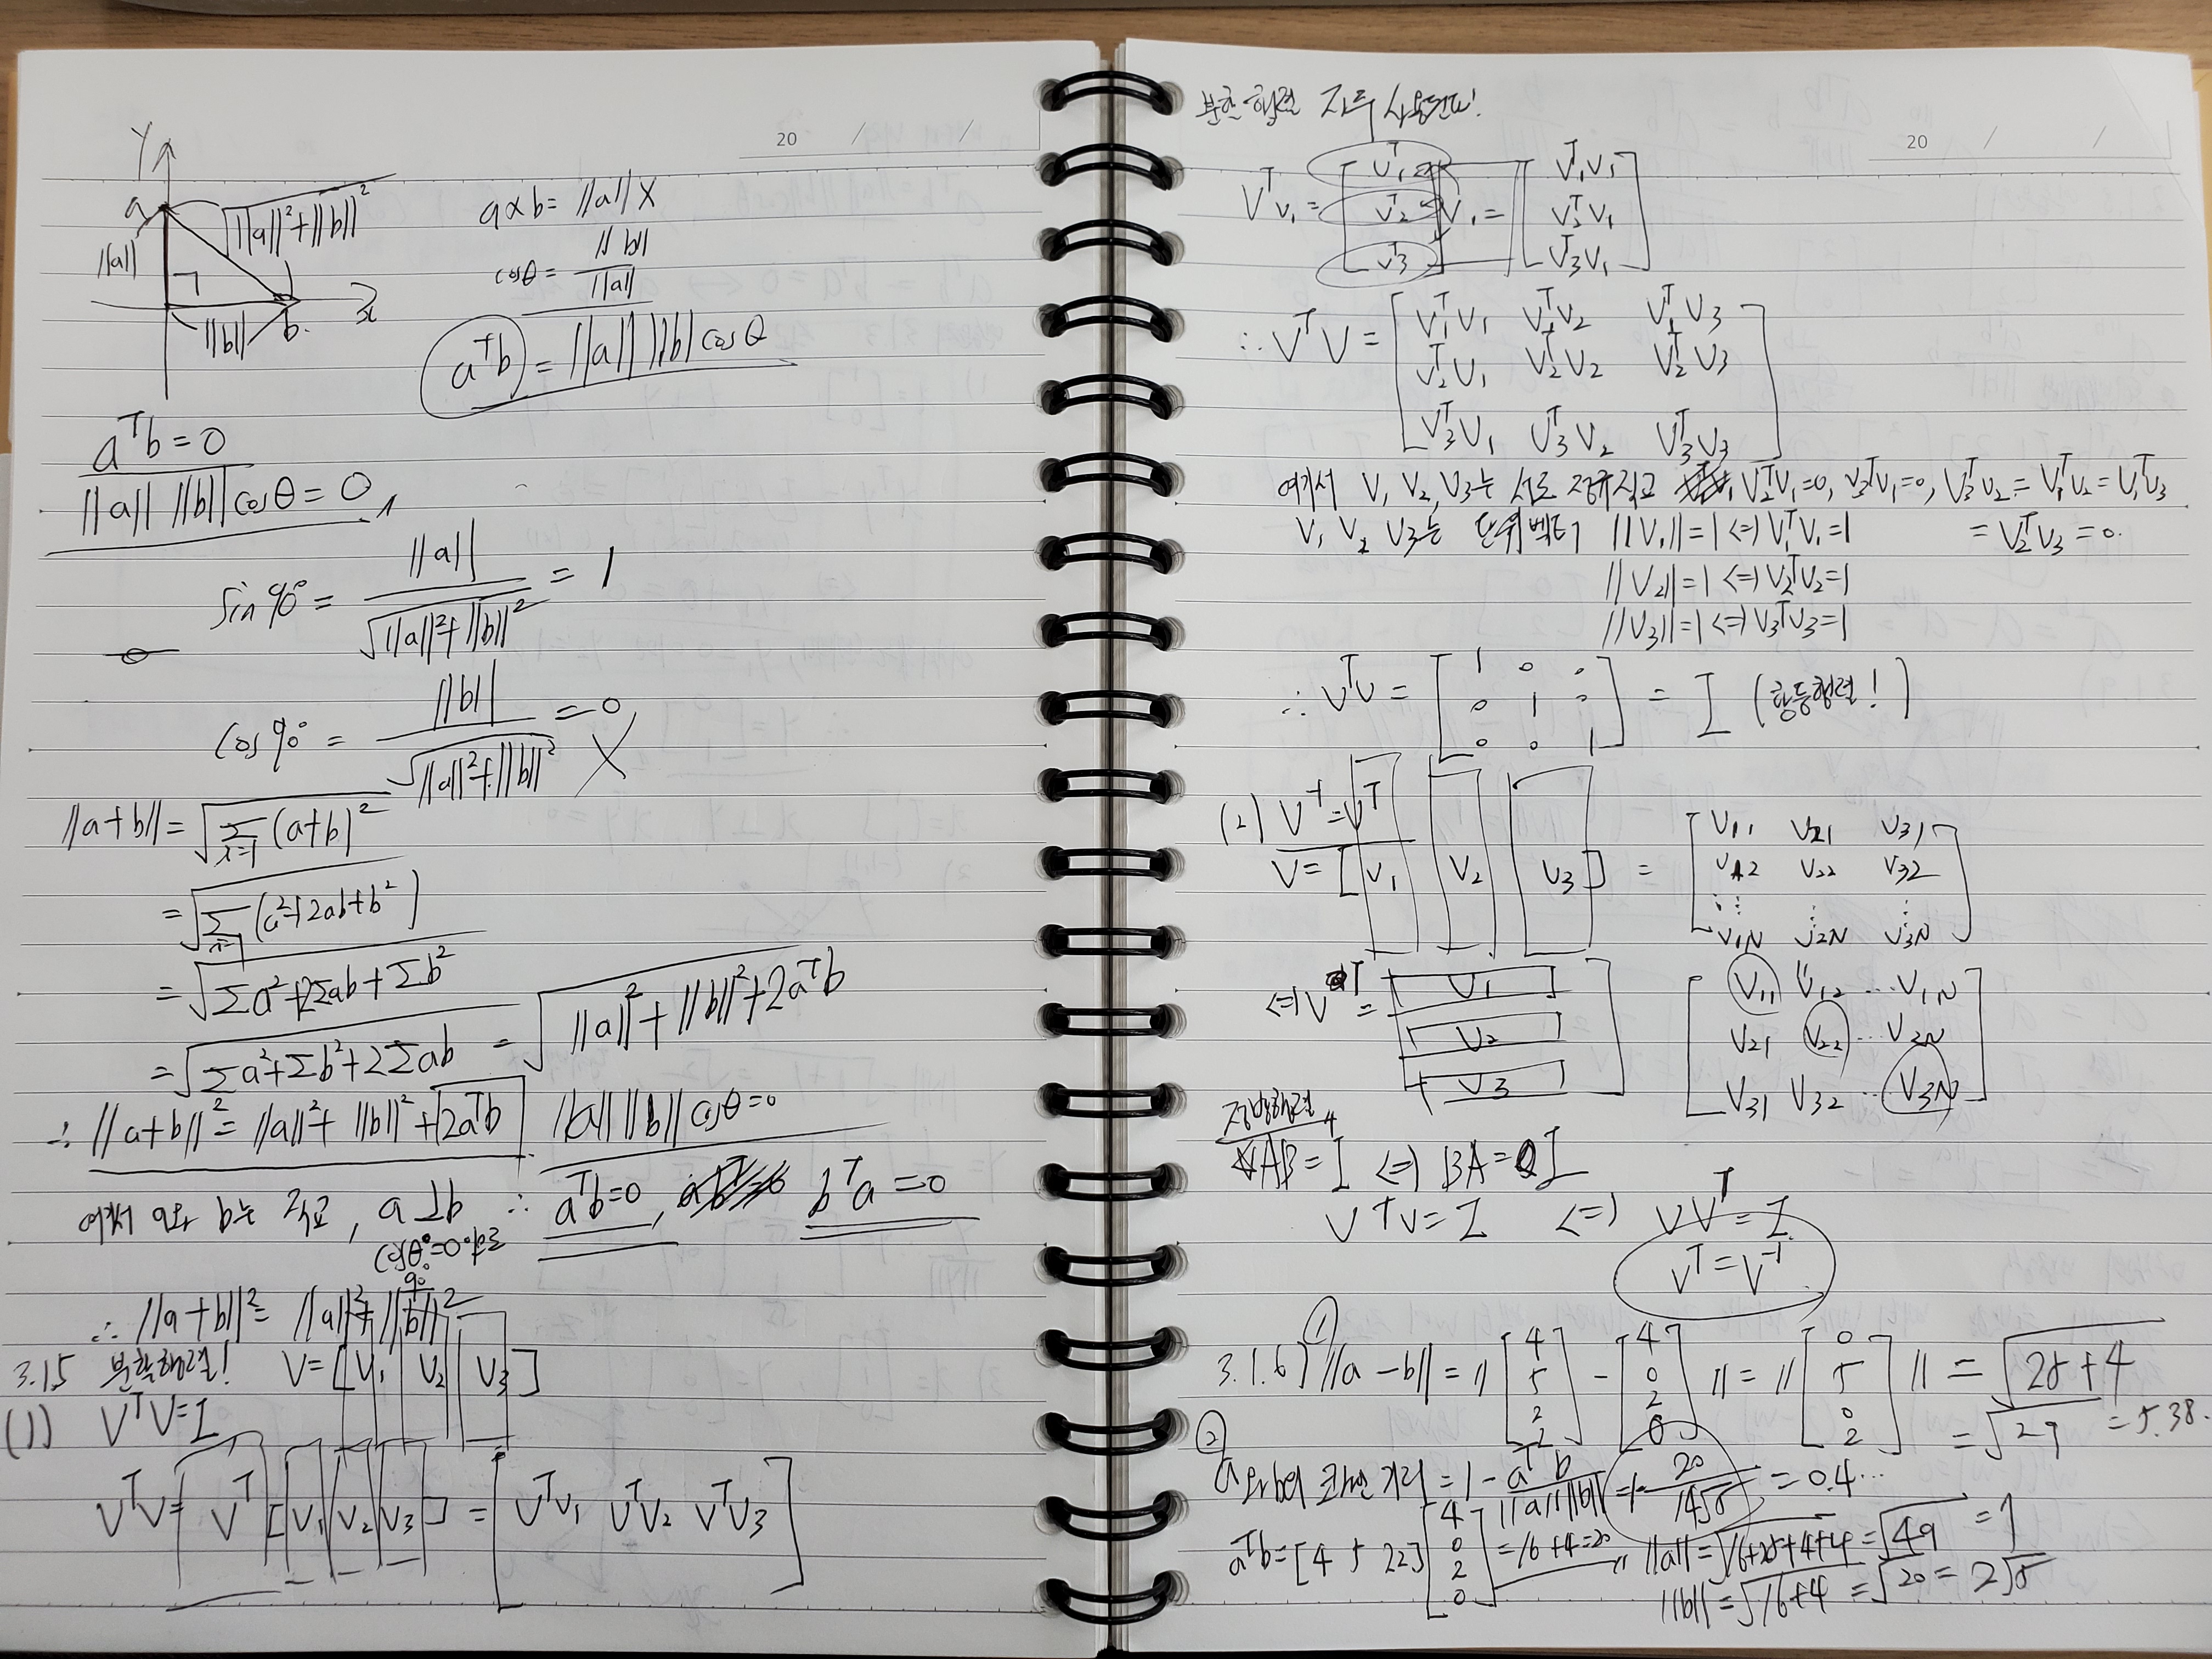 20 / /
y
a
||a||
||a||²+||b||²
||b||
b
x
a×b = ||a|| x
cosθ = ||b|| / ||a||
aᵀb = ||a|| ||b|| cosθ
aᵀb = 0
||a|| ||b|| cosθ = 0,
sin 90° = ||a|| / √||a||²+||b||² = 1
cos 90° = ||b|| / √||a||²+||b||² = 0 X
||a+b|| = √Σ(a+b)²
= √Σ(a²+2ab+b²)
= √Σa²+2Σab+Σb²
= √Σa²+Σb²+2Σab = √||a||²+||b||²+2aᵀb
∴ ||a+b||² = ||a||²+||b||²+2aᵀb ||a|| ||b|| cosθ=0
여기서 a와 b는 직교, a⊥b ∴ aᵀb=0, bᵀa=0
∴ ||a+b||² = ||a||²+||b||²
3.15 블록행렬곱!
(1) VᵀV=I V=[V₁ V₂ V₃]
VᵀV = Vᵀ[V₁ V₂ V₃] = [VᵀV₁ VᵀV₂ VᵀV₃]
20 / /
VᵀV₁ = [V₁ᵀ V₂ᵀ V₃ᵀ] V₁ = [V₁ᵀV₁ V₂ᵀV₁ V₃ᵀV₁]
∴ VᵀV = [V₁ᵀV₁ V₁ᵀV₂ V₁ᵀV₃
V₂ᵀV₁ V₂ᵀV₂ V₂ᵀV₃
V₃ᵀV₁ V₃ᵀV₂ V₃ᵀV₃]
여기서 V₁ V₂ V₃는 서로 직교 V₂ᵀV₁=0, V₃ᵀV₁=0, V₃ᵀV₂=V₁ᵀV₂=V₁ᵀV₃
=V₂ᵀV₃=0.
V₁ V₂ V₃는 단위벡터 ||V₁||=1 <=> V₁ᵀV₁=1
||V₂||=1 <=> V₂ᵀV₂=1
||V₃||=1 <=> V₃ᵀV₃=1
∴ VᵀV = [1 0 0
0 1 0
0 0 1] = I (항등행렬!)
(2) V⁻¹=Vᵀ
V = [V₁ V₂ V₃] = [V₁₁ V₂₁ V₃₁
V₁₂ V₂₂ V₃₂
⋮ ⋮ ⋮
V₁N V₂N V₃N]
<=> Vᵀ = [V₁ V₂ V₃] [V₁₁ V₁₂ … V₁N
V₂₁ V₂₂ … V₂N
V₃₁ V₃₂ … V₃N]
정방행렬
AB=I <=> BA=I
VᵀV=I <=> VVᵀ=I
Vᵀ=V⁻¹
3.16) ① ||a-b|| = ||[4 5 2] - [4 0 2]|| = ||[0 5 0]|| = √25+4
= √29 = 5.38…
② = 1 - aᵀb / ||a|| ||b|| = 1 - 20 / = 0.4…
aᵀb=[4 5 2 2] [4 0 2 0] = 16+4=20 ||a|| = √16+25+4+4 = √49 = 7
||b|| = √16+4 = √20 = 2√5